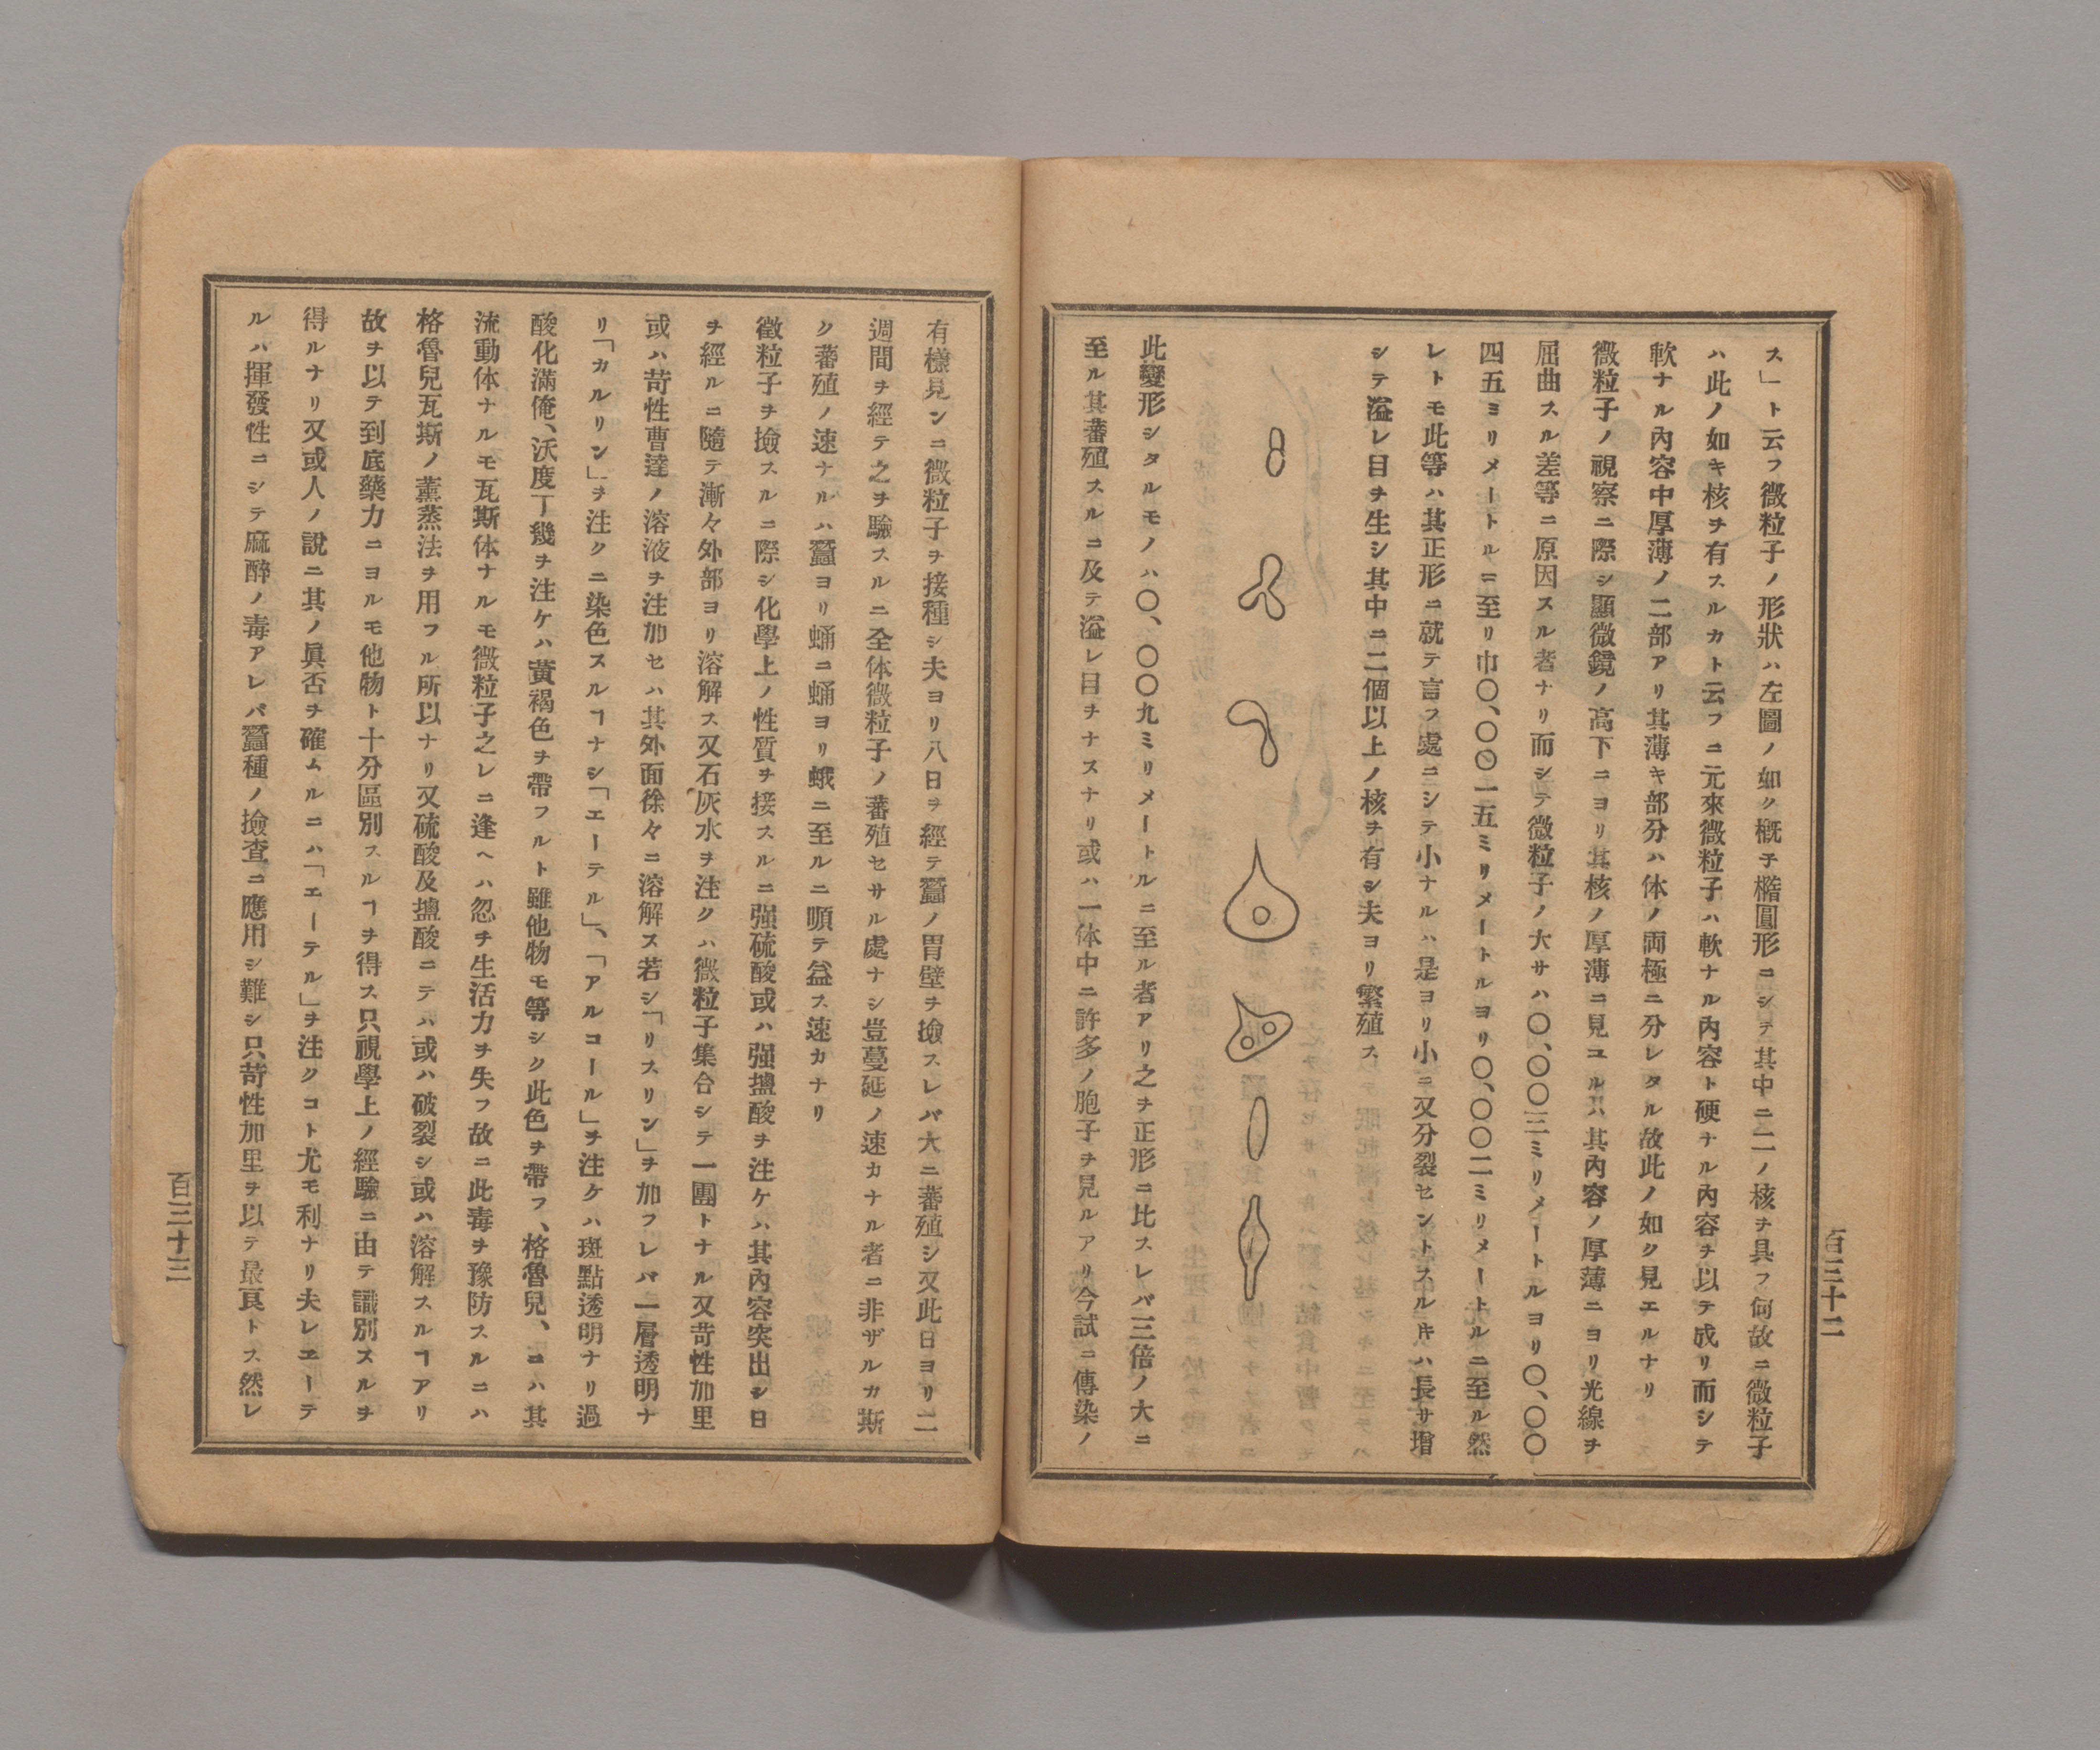 ス」ト云フ微粒子ノ形狀ハ左圖ノ如ク概子橢圓形ニシテ其中ニ二ノ核ヲ具フ何故ニ微粒子
ハ此ノ如キ核ヲ有スルカト云フニ元來微粒子ハ軟ナル內容ト硬ナル內容ヲ以テ成リ而シテ
軟ナル內容中厚薄ノ二部アリ其薄キ部分ハ体ノ両極ニ分レタル故此ノ如ク見エルナリ
微粒子ノ視察ニ際シ顯微鏡ノ高下ニヨリ其核ノ厚薄ニ見ユルハ其內容ノ厚薄ニヨリ光線ヲ
屈曲スル差等ニ原因スル者ナリ而シテ微粒子ノ大サハ〇、〇〇三ミリメートルヨリ〇、〇〇
四五ミリメートルニ至リ巾〇、〇〇一五ミリメートルヨリ〇、〇〇二ミリメートルニ至ル然
レトモ此等ハ其正形ニ就テ言フ處ニシテ小ナルハ是ヨリ小ニ又分裂セントスルキハ長サ增
シテ溢レ目ヲ生シ其中ニ二個以上ノ核ヲ有シ夫ヨリ繁殖ス
此變形シタルモノハ〇、〇〇九ミリメートルニ至ル者アリ之ヲ正形ニ比スレバ三倍ノ大ニ
至ル其蕃殖スルニ及テ溢レ目ヲナスナリ或ハ一体中ニ許多ノ胞子ヲ見ルアリ今試ニ傳染ノ
百三十二
有樣見ンニ微粒子ヲ接種シ夫ヨリ八日ヲ經テ蠶ノ胃壁ヲ撿スレバ大ニ蕃殖シ又此日ヨリ二
週間ヲ經テ之ヲ驗スルニ全体微粒子ノ蕃殖セサル處ナシ豈蔓延ノ速カナル者ニ非ザルカ斯
ク蕃殖ノ速ナルハ蠶ヨリ蛹ニ蛹ヨリ蛾ニ至ルニ順テ益ス速カナリ
微粒子ヲ撿スルニ際シ化學上ノ性質ヲ接スルニ强硫酸或ハ强鹽酸ヲ注ケハ其內容突出シ日
ヲ經ルニ隨テ漸々外部ヨリ溶解ス又石灰水ヲ注クハ微粒子集合シテ一團トナル又苛性加里
或ハ苛性曹達ノ溶液ヲ注加セハ其外面徐々ニ溶解ス若シ「リスリン」ヲ加フレバ一層透明ナ
リ「カルリン」ヲ注クニ染色スルヿナシ「エーテル」、「アルコール」ヲ注ケハ斑點透明ナリ過
酸化滿俺、沃度丁幾ヲ注ケハ黃褐色ヲ帶フルト雖他物モ等シク此色ヲ帶フ、格魯兒、ニハ其
流動体ナルモ瓦斯体ナルモ微粒子之レニ逢ヘハ忽チ生活力ヲ失フ故ニ此毒ヲ豫防スルニハ
格魯兒瓦斯ノ薰蒸法ヲ用フル所以ナリ又硫酸及鹽酸ニテハ或ハ破裂シ或ハ溶解スルヿアリ
故ヲ以テ到底藥力ニヨルモ他物ト十分區別スルヿヲ得ス只視學上ノ經驗ニ由テ識別スルヲ
得ルナリ又或人ノ說ニ其ノ眞否ヲ確ムルニハ「エーテル」ヲ注クコト尤モ利ナリ夫レエーテ
ルハ揮發性ニシテ麻醉ノ毒アレバ蠶種ノ撿査ニ應用シ難シ只苛性加里ヲ以テ最良トス然レ
百三十三